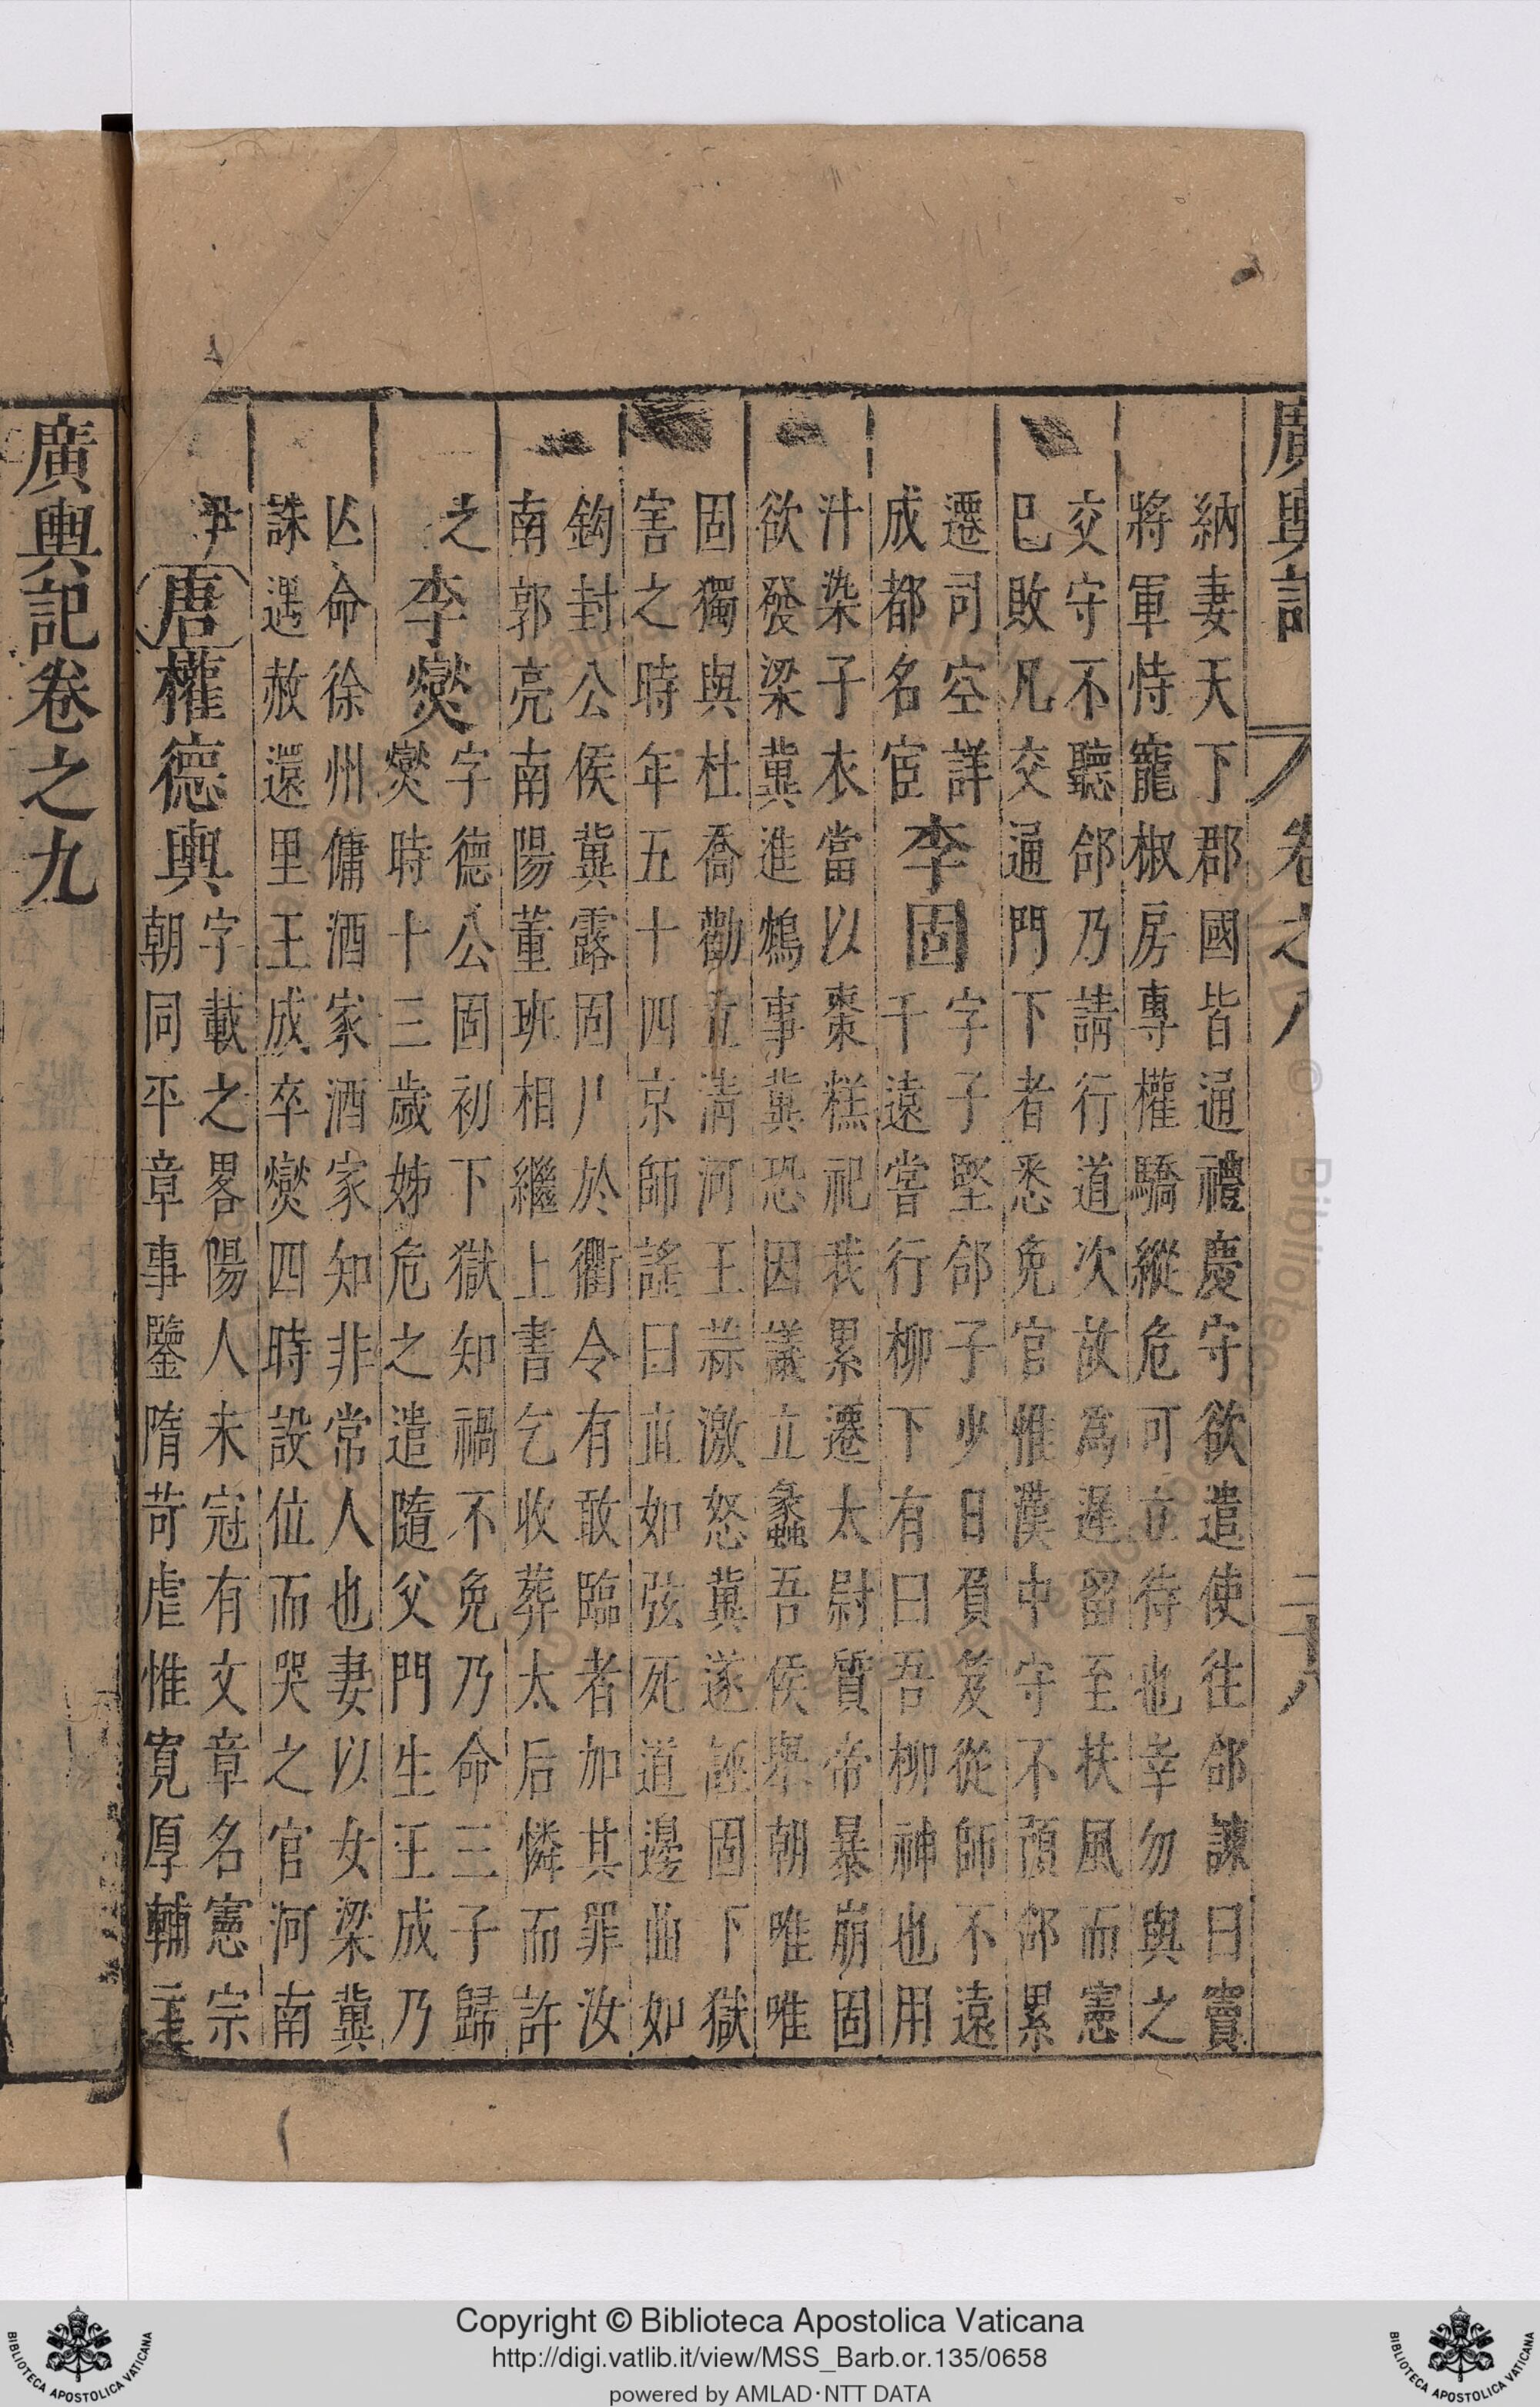 廣輿記 卷之八 二十八
納妻天下郡國皆通禮慶守欲遣使往郃諫曰竇
將軍恃寵椒房專權驕縱危可立待也幸勿與之
交守不聽郃乃請行道次故為遲留至扶風而憲
已敗凡交通門下者悉免官惟漢中守不預郃累
遷司空詳
成都名宦
李固
字子堅郃子少日負笈從師不遠
千遠嘗行柳下有曰吾柳神也用
汁染子衣當以棗糕祀我累遷太尉質帝暴崩固
欲發梁冀進鴆事冀恐因議立蠡吾侯舉朝唯唯
固獨與杜喬勸立清河王蒜激怒冀遂誣固下獄
害之時年五十四京師謠曰直如弦死道邊曲如
鈎封公侯冀露固尸於衢令有敢臨者加其罪汝
南郭亮南陽董班相繼上書乞收葬太后憐而許
之
李燮
字德公固初下獄知禍不免乃命三子歸
燮時十三歲姊危之遣隨父門生王成乃
亾命徐州傭酒家酒家知非常人也妻以女梁冀
誅遇赦還里王成卒燮四時設位而哭之官河南
尹
唐
權德輿
字載之畧陽人未冠有文章名憲宗
朝同平章事鑒隋苛虐惟寬厚輔主
廣輿記卷之九
Copyright © Biblioteca Apostolica Vaticana
http://digi.vatlib.it/view/MSS_Barb.or.135/0658
powered by AMLAD·NTT DATA
BIBLIOTECA APOSTOLICA VATICANA
BIBLIOTECA APOSTOLICA VATICANA